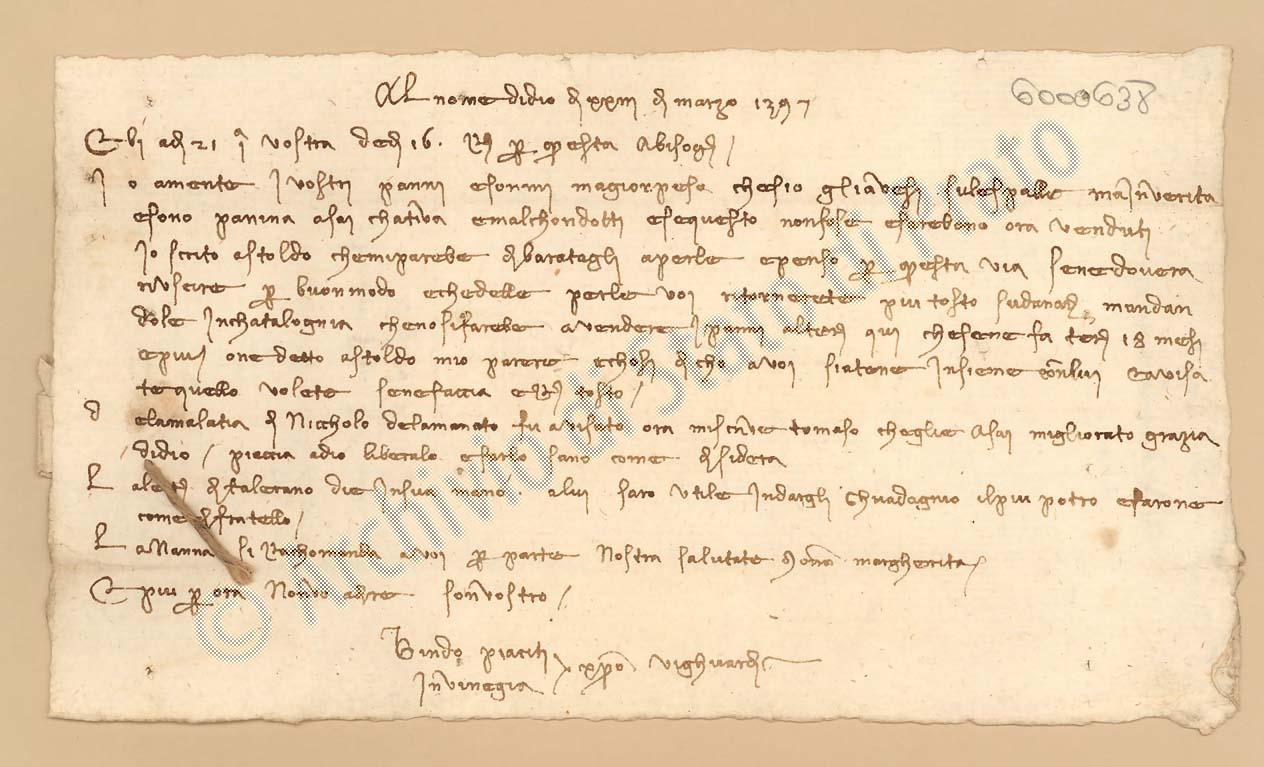 Al nome di Dio dì XXIII di marzo 1397
6000638
Ebi adì 21 i vostra dedì 16. R per questa a bisogni /
Io a mente i vostri panni e sonmi magior peso che s'io gli avesi sule spalle ma inverita
e sono panina asai chativa e mal chondotti e se questo non fose e sarebono ora venduti
Io scrito a Stoldo che mi parebe di baratagli a perle e penso per questa via se ne dovera
riuscire per buon modo e che delle perle voi ritornerete piu tosto su danari mandan
dole in Chatalognia che no si farebe a vendere i panni a li qui che se ne fa ter 18 mesi
e piui one detto a Stoldo mio parere e chosi dicho a voi siatene insieme con lui e avisa
te quello volete se ne faccia e tosto /
de la malatia di Niccholo de l'Amanato fu avisato ora mi scrive Tomaso che gli è asai migliorato grazia
di Dio / piaccia a Dio liberalo e farlo sano come disidera
La letera di Falerano die in sua mano. a lui saro utile in dargli ghuadagnio il piu potro e farone
come di fratello /
La Nanna si rachomanda a voi per parte nostra salutate mona Margherita /
E piu per ora non vo dire son vostro /
Bindo Piaciti / Xpo vi ghuardi
in Vinegia
© Archivio di Stato di Prato